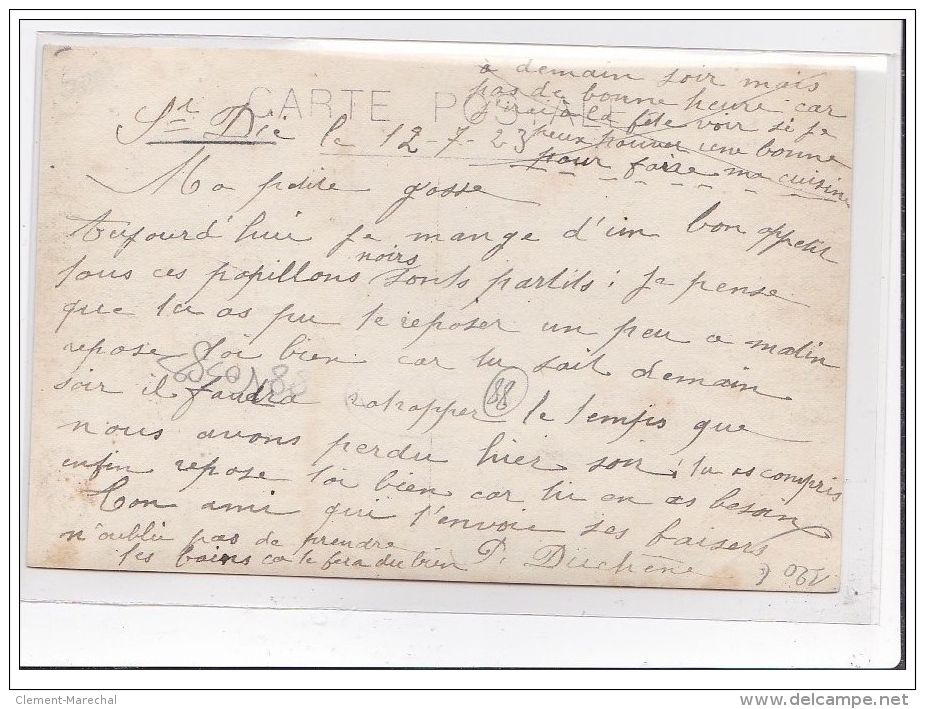 a demain soir mais
pas de bonne heure car
j'irai à la fête voir si je
peux trouver une bonne
pour faire ma cuisine
CARTE POSTALE
St Dié le 12-7-23
Ma petite gosse
Aujourd'hui je mange d'un bon appetit
tous ces papillons noirs sonts partits ; je pense
que tu as pu te reposer un peu ce matin
repose toi bien car tu sait demain
soir il faudra ratrapper le temps que
nous avons perdu hier soir ; tu as compris
enfin repose toi bien car tu en as besoin
Ton ami qui t'envoie ses baisers
n'oublie pas de prendre P. Duchêne
tes bains ca te fera du bien
88
120 €
Clement-Marechal
delcampe.net